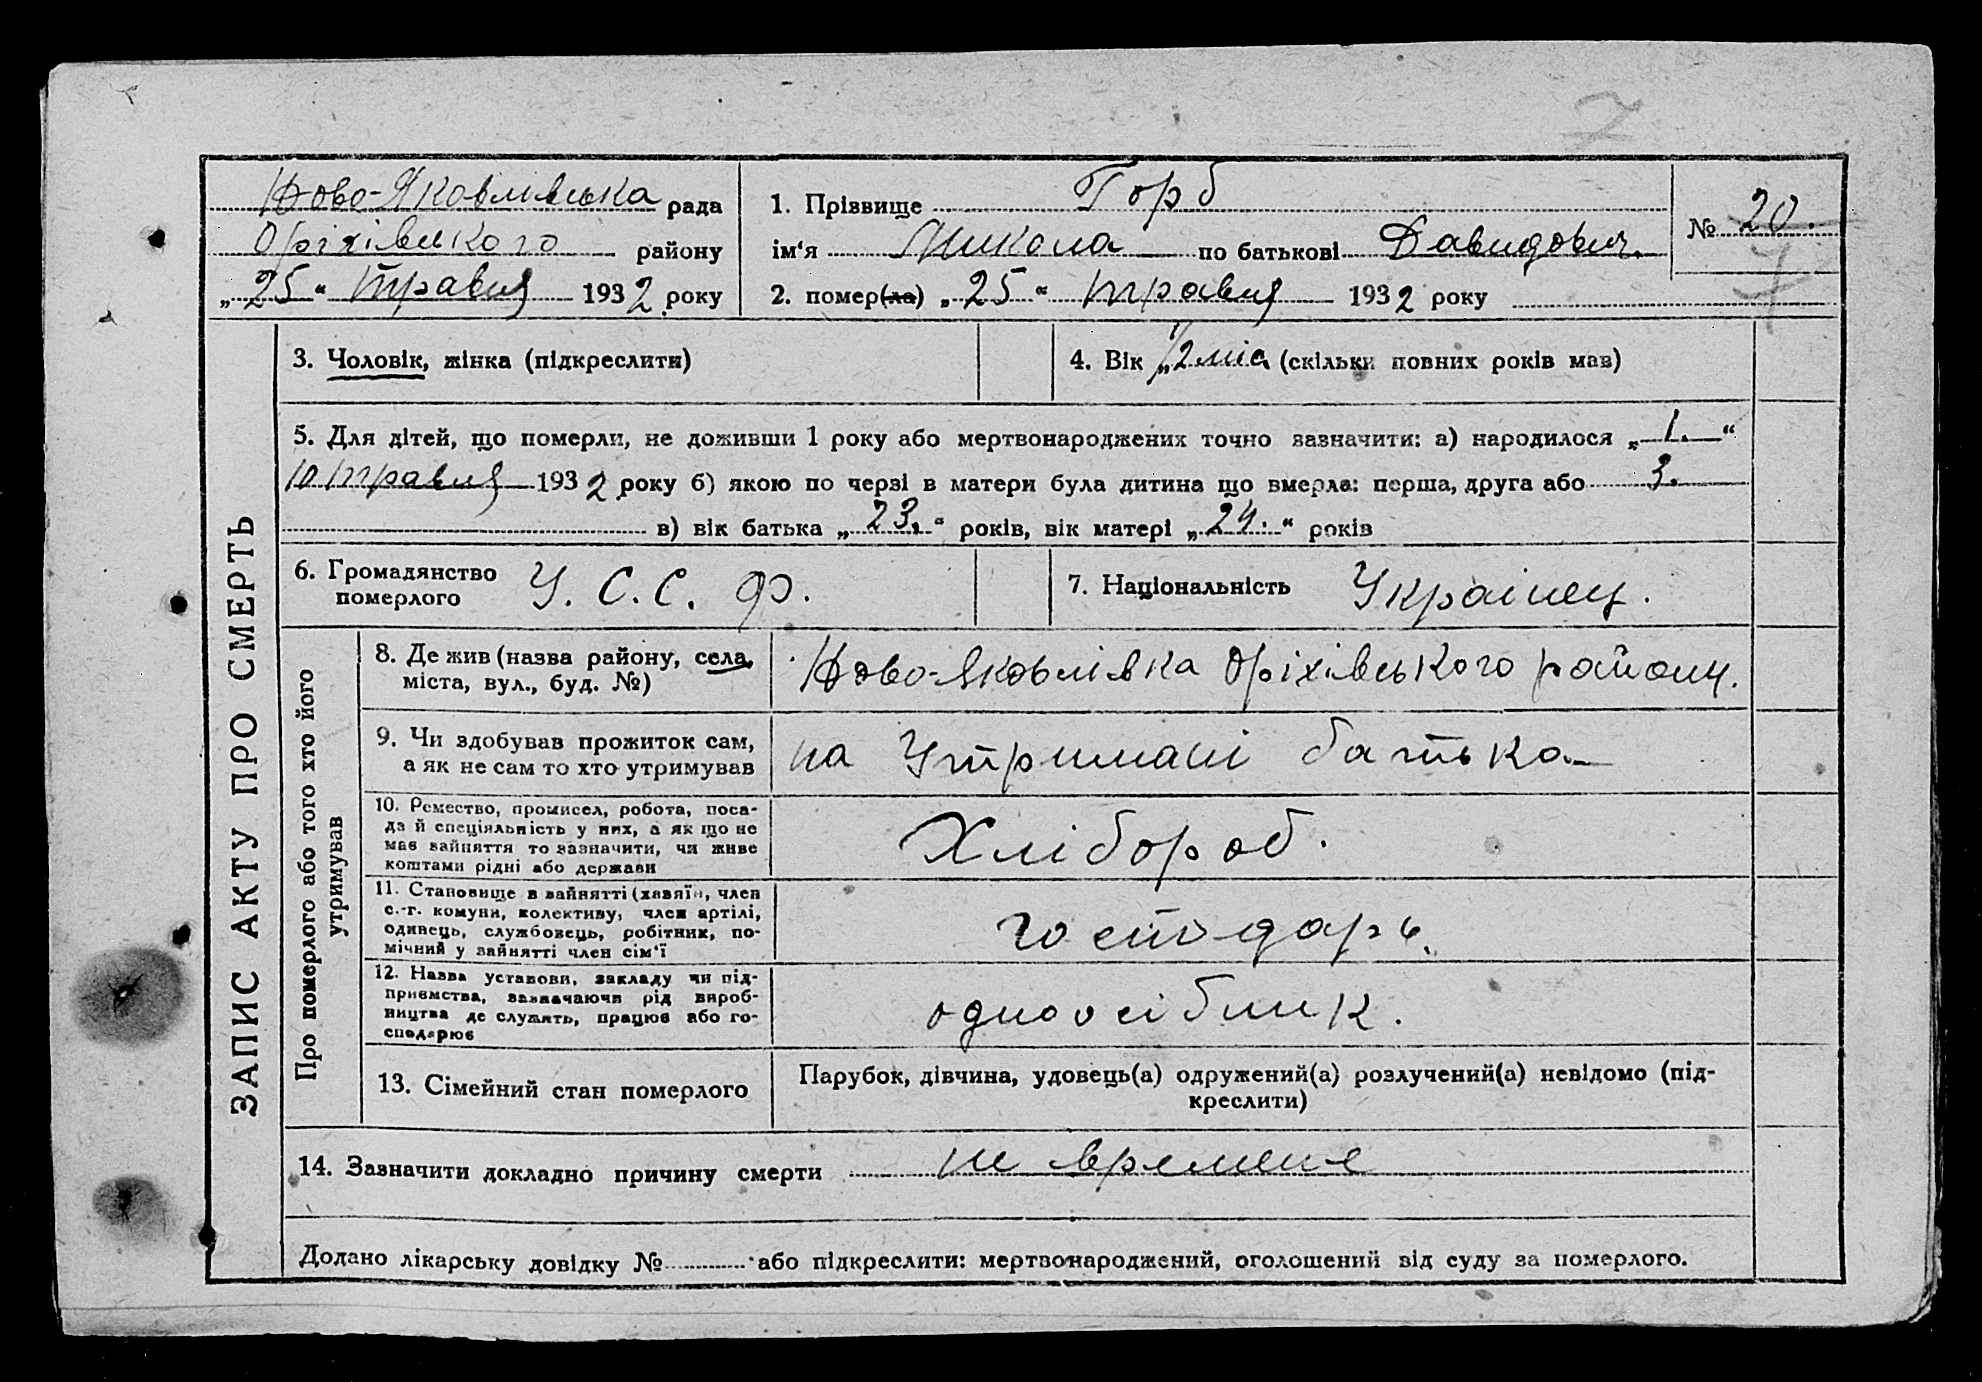 7
Ново-Яковлівська рада
Оріхівського району
„25“ травня 1932 року
1. Прізвище Горб
ім'я Микола по батькові Давидович.
2. помер(ла) „25“ травня 1932 року
№ 20.
7
ЗАПИС АКТУ ПРО СМЕРТЬ
3. Чоловік, жінка (підкреслити)
4. Вік „1/2 міс. (скільки повних років мав)
5. Для дітей, що померли, не доживши 1 року або мертвонароджених точно зазначити: а) народилося „1.“
10 травня 1932 року б) якою по черзі в матери була дитина що вмерла: перша, друга або 3.
в) вік батька „23.“ років, вік матері „24.“ років
6. Громадянство
померлого
У. С. С. Р.
7. Національність Українец.
Про померлого або того хто його
утримував
8. Де жив (назва району, села,
міста, вул., буд. №)
Ново-Яковлівка Оріхівського району.
9. Чи здобував прожиток сам,
а як не сам то хто утримував
на Утримані батька
10. Ремество, промисел, робота, поса-
да й спеціяльність у них, а як що не
має зайняття то зазначити, чи живе
коштами рідні або держави
Хлібороб.
11. Становище в зайнятті (хазяїн, член
с.-г. комуни, колективу, член артілі,
одинець, службовець, робітник, по-
мічний у зайнятті член сім'ї
господарь.
12. Назва установи, закладу чи під-
приємства, зазначаючи рід вироб-
ництва де служить, працює або го-
сподарює
одноосібник.
13. Сімейний стан померлого
Парубок, дівчина, удовець(а) одружений(а) розлучений(а) невідомо (під-
креслити)
14. Зазначити докладно причину смерти не времене
Додано лікарську довідку № або підкреслити: мертвонароджений, оголошений від суду за померлого.